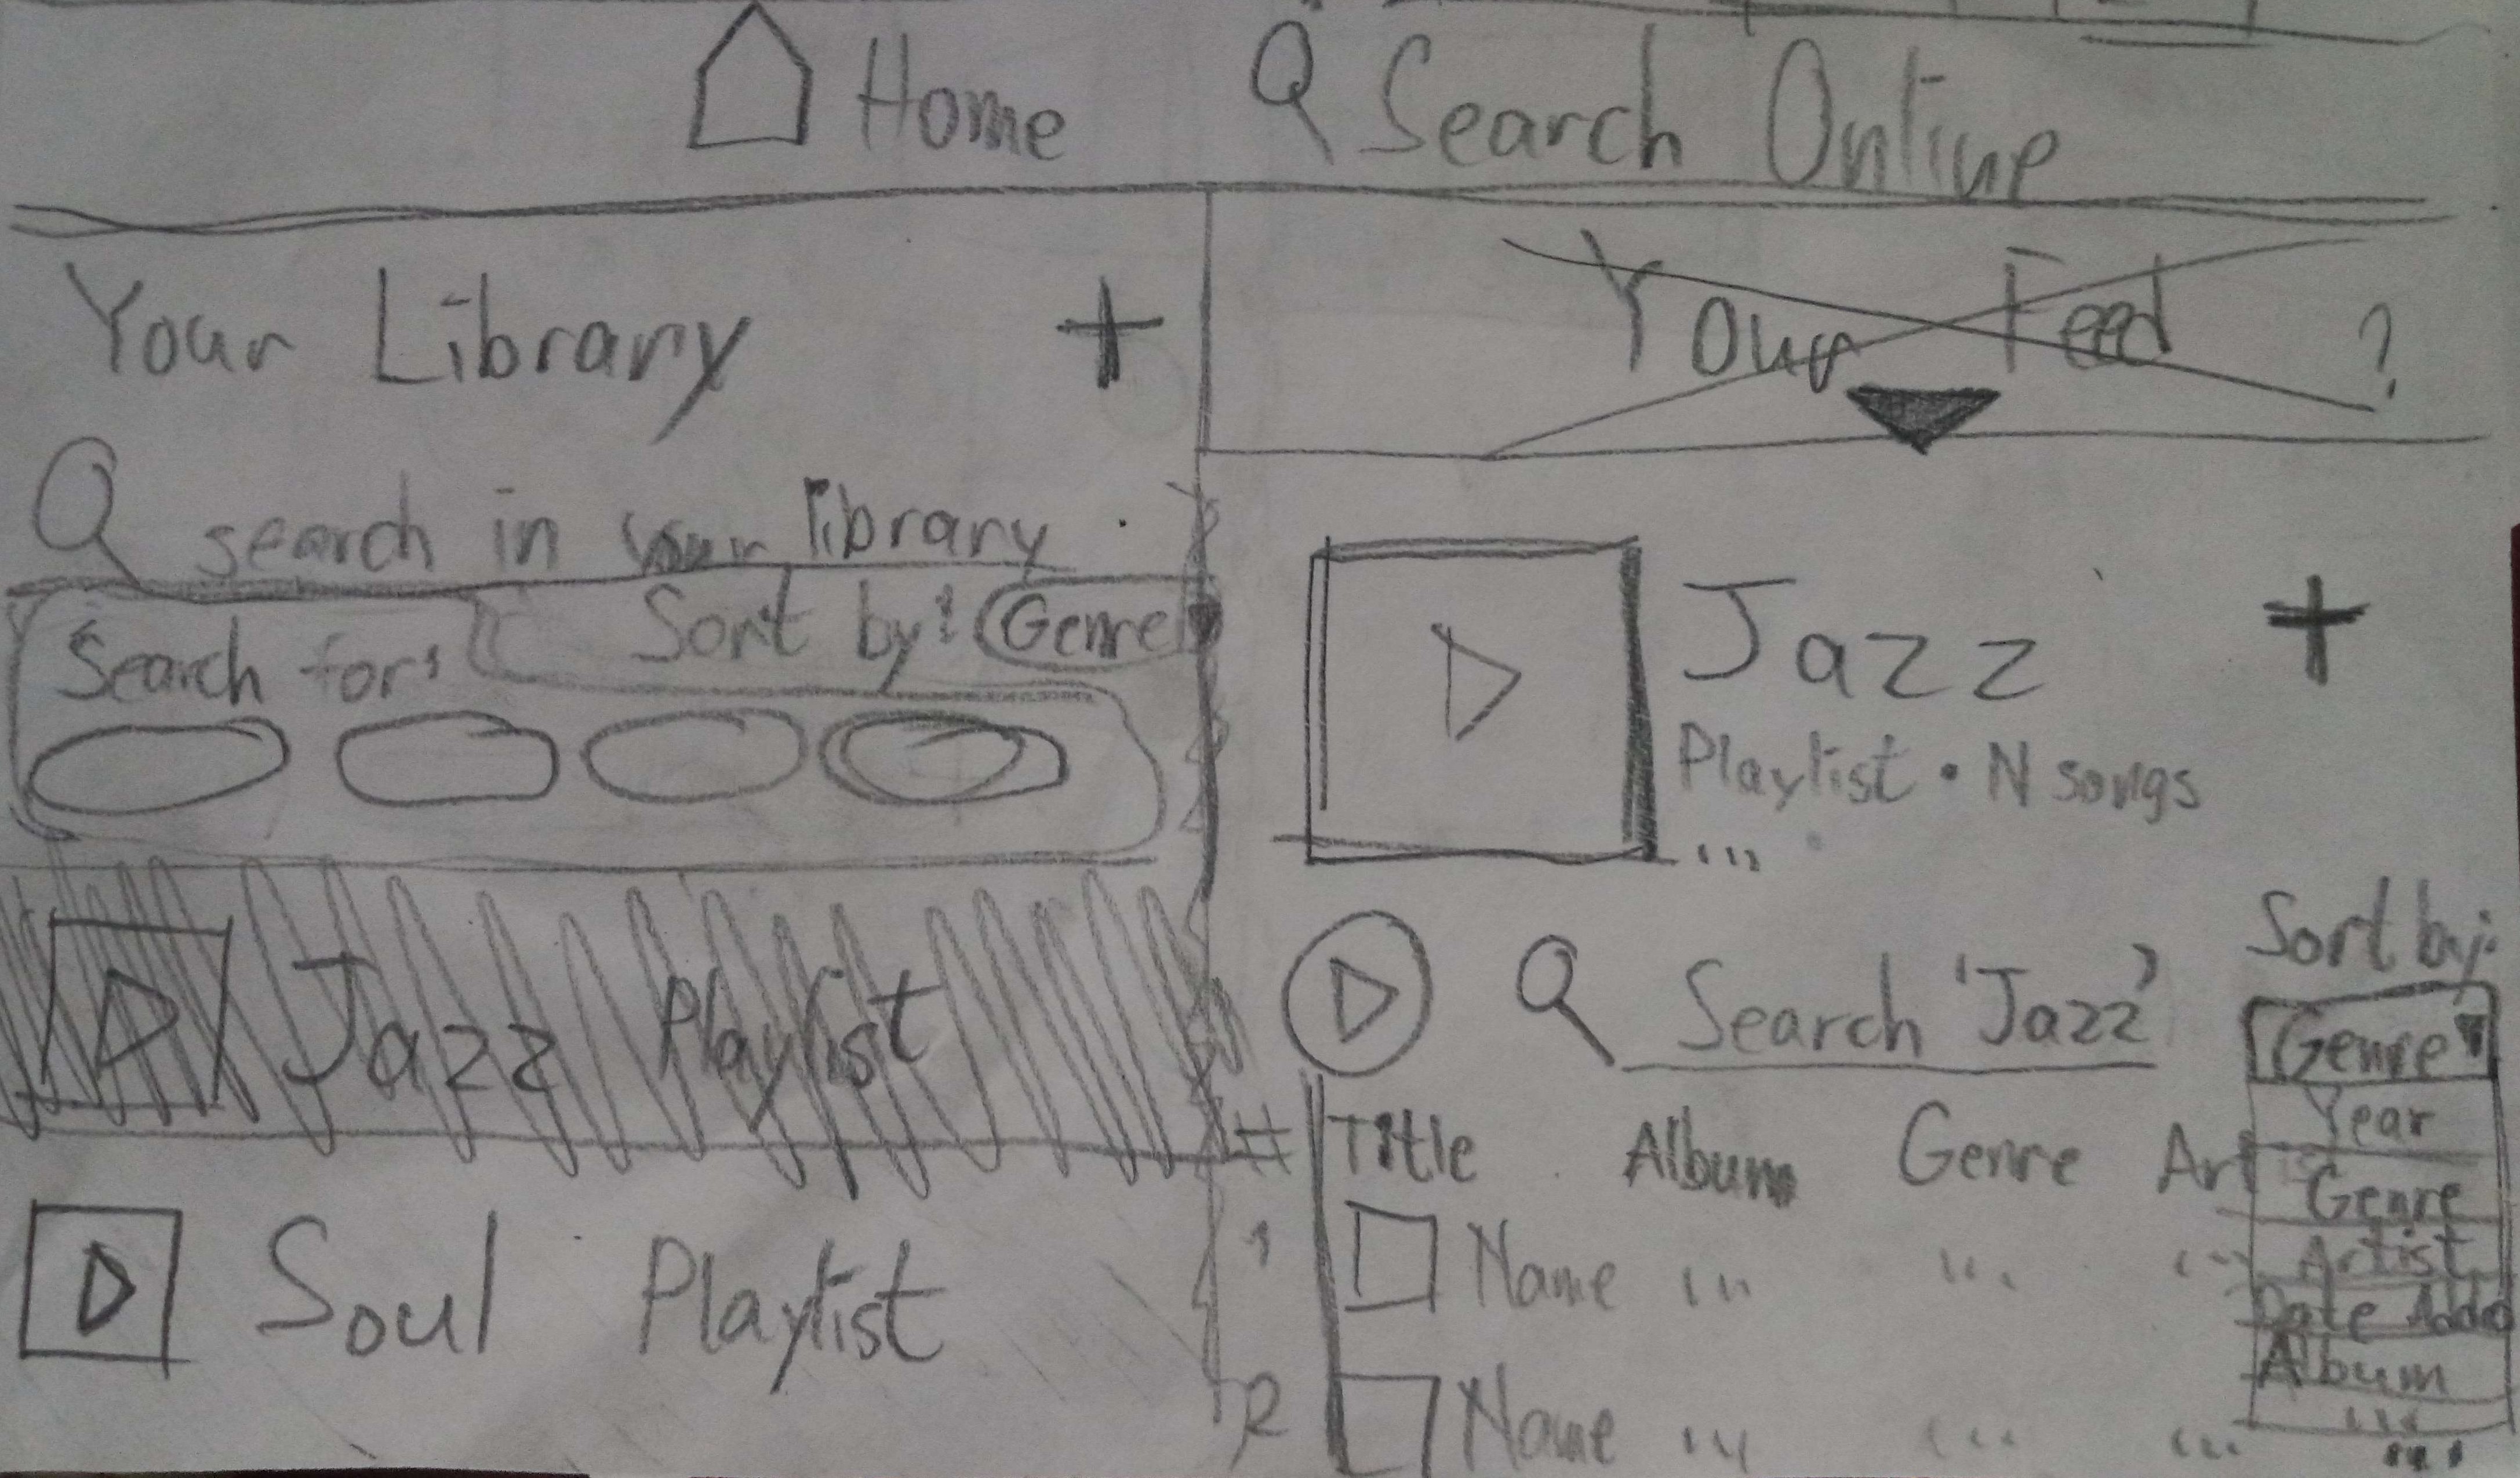 Home
Search Online
Your Library +
Your Feed ?
search in your library
Search for:
Sort by: Genre
Jazz Playlist
Soul Playlist
Jazz +
Playlist • N songs
...
Search 'Jazz'
Sort by:
Genre
Year
Genre
Artist
Date Added
Album
...
...
# Title Album Genre Art
1 Name ... ... ...
2 Name ... ... ...